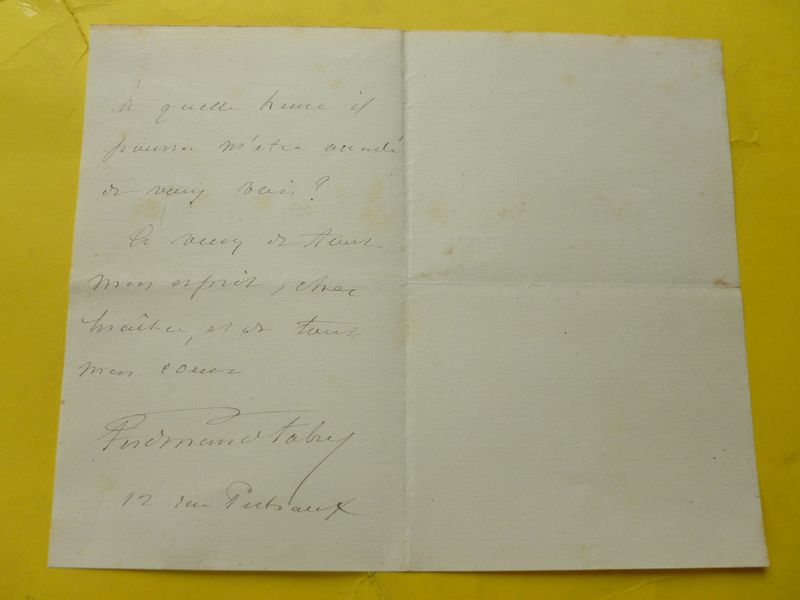 à quelle heure il
pourra m'être accordé
de vous voir?
à vous de tout
mon esprit, cher
maître, et de tout
mon coeur
Ferdinand Fabre
12 rue